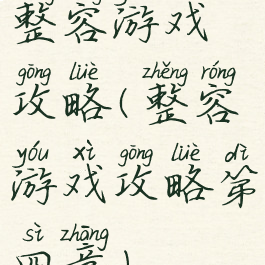 整容游戏
gōng lüè zhěng róng
攻略(整容
yóu xì gōng lüè dì
游戏攻略第
sì zhāng
四章)